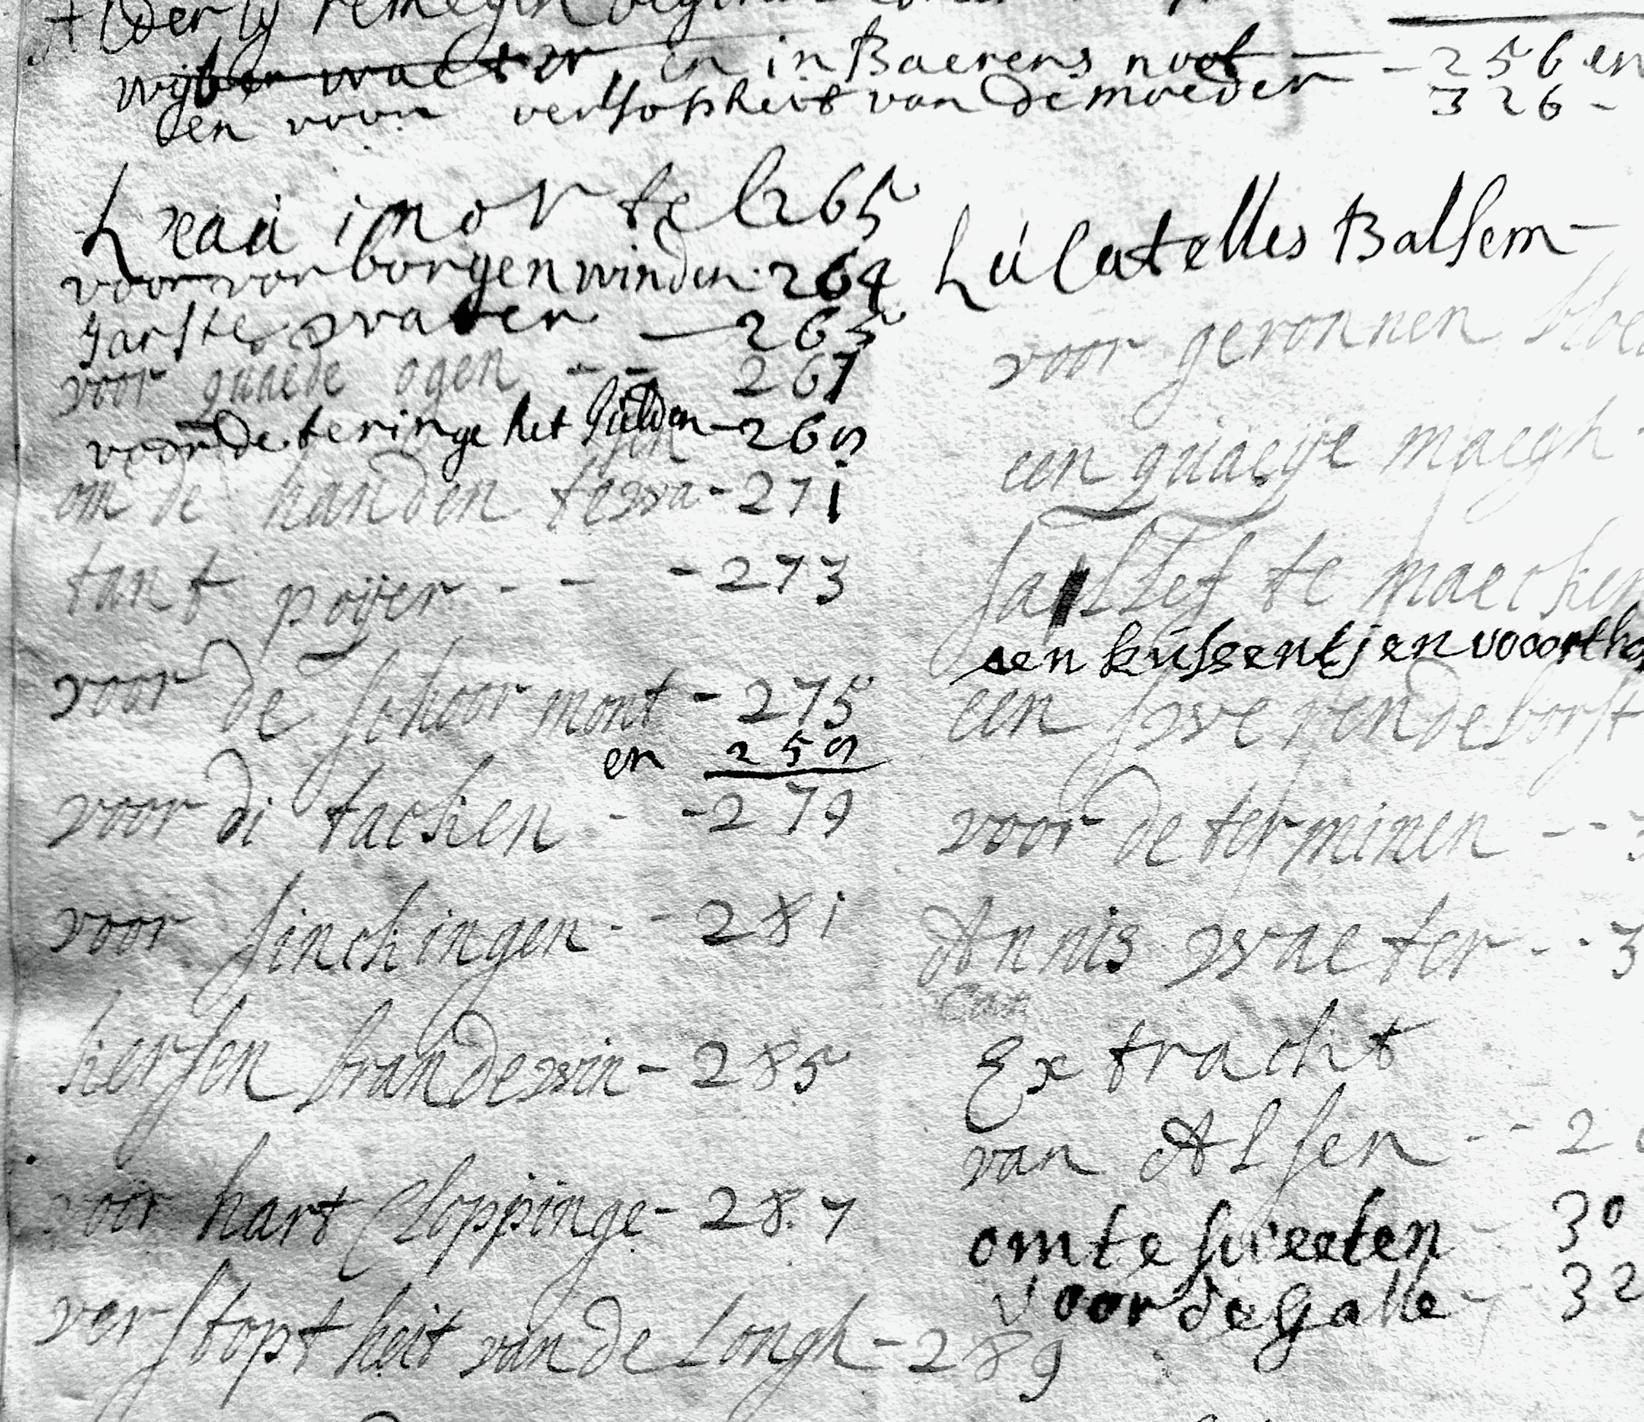 Alderly remegin
wijber waeter, en in Baerens noot - 256 en
en voor verstopheit van de moeder - 326 -
Leaú imortel 265
voor vorborgen winden - 264
garste water - 265
voor quaede ogen - - 267
voor de teringe het - 269
om de handen te wa - 271
tant poijer - - - 273
voor de schoormont - 275
en 259
voor di tacken - - 279
voor sinckingen - - 281
kersen brandewin - 285
voor hart Cloppinge - 287
verstoptheit van de Longh - 289
Lúcatelles Balsem -
voor geronnen bloe
een quaeije maegh
te maecken
een kussentjen vooor
een swerende borst
voor de terminen - - 3
Annis waeter - - 3
Extrackt
van Alsen - - 2
om te sweeten - 30
voor de Galle - 32